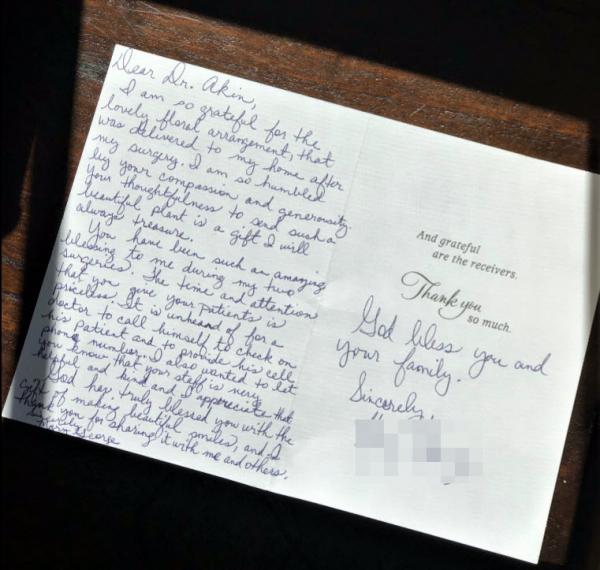 Dear Dr. Akin,
I am so grateful for the
lovely floral arrangement, that
was delivered to my home after
my surgery. I am so humbled
by your compassion and generosity.
Your thoughtfulness to send such a
beautiful plant is a gift I will
always treasure.
You have been such an amazing
blessing to me during my two
surgeries. The time and attention
that you give your patients is
priceless. It is unheard of for a
doctor to call himself to check on
his patient and to provide his cell
phone number. I also wanted to let
you know that your staff is very
helpful and kind and I appreciate that
God has truly blessed you with the
gift of making beautiful smiles, and I
thank you for sharing it with me and others.
Sincerely
George
And grateful
are the receivers.
Thank you
so much.
God bless you and
your family.
Sincerely,